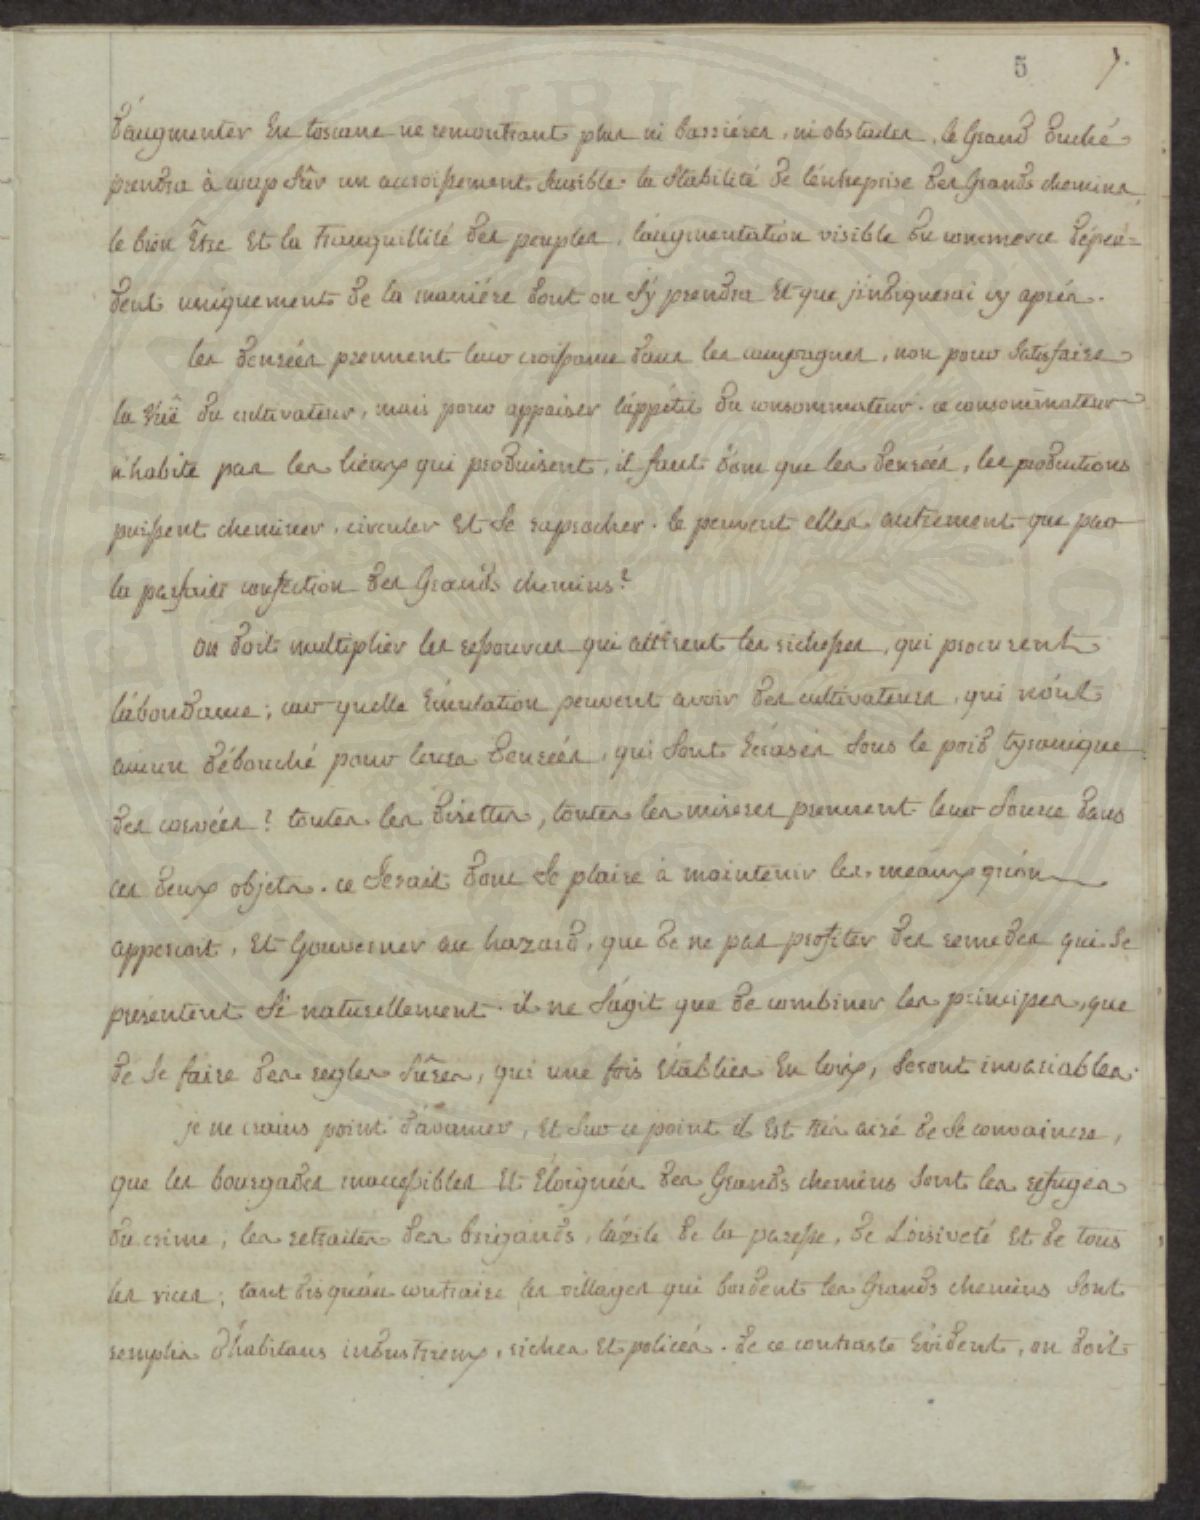 5 7.
d'augmenter En toscane ne remontrant plus ni barriéres, ni obstacles, le Grand duché
prendra à coup Sûr un accroissement Sensible. la Stabilité de l'éntreprise des Grands chemins,
le bien Être Et la tranquillité des peuples, l'augmentation visible du commerce dépen=
dent uniquement de la maniére dont on S'y prendra Et que j'indiquerai cy aprés.
les denrées prennent leur croissance dans les campagnes, non pour Satisfaire
la Vüe du cultivateur, mais pour appaiser l'appétit du consommateur. ce consommateur
n'habite pas les lieux qui produisent, il faut donc que les denrées, les productions
puissent cheminer, circuler Et Se raprocher. le peuvent elles autrement que par
la parfaite confection des Grands chemins?
on doit multiplier les ressources qui attirent les richesses, qui procurent
l'abondance; car quelle Emulation peuvent avoir des cultivateurs, qui n'ont
aucun débouché pour leurs denrées, qui Sont Ecrasés Sous le poid tyranique
des corvées? toutes les disettes, toutes les miseres prennent leur Source dans
ces deux objets. ce Serait donc Se plaire à maintenir les meaux qu'on
apperçoit, Et Gouverner au hazard, que de ne pas profiter des remedes qui Se
présentent Si naturellement. il ne S'agit que de combiner les principes, que
de Se faire des regles Sûres, qui une fois Etablies En loix, Seront invariables.
je ne crains point d'avancer, Et Sur ce point il Est trés aisé de Se convaincre,
que les bourgades inaccessibles Et Eloignées des Grands chemins Sont les refuges
du crime, les retraites des brigands, l'azile de la paresse, de L'oisiveté Et de tous
les vices; tant dis qu'au contraire les villages qui bordent les Grands chemins Sont
remplis d'habitans industrieux, riches Et policés. de ce contraste Evident, on doit